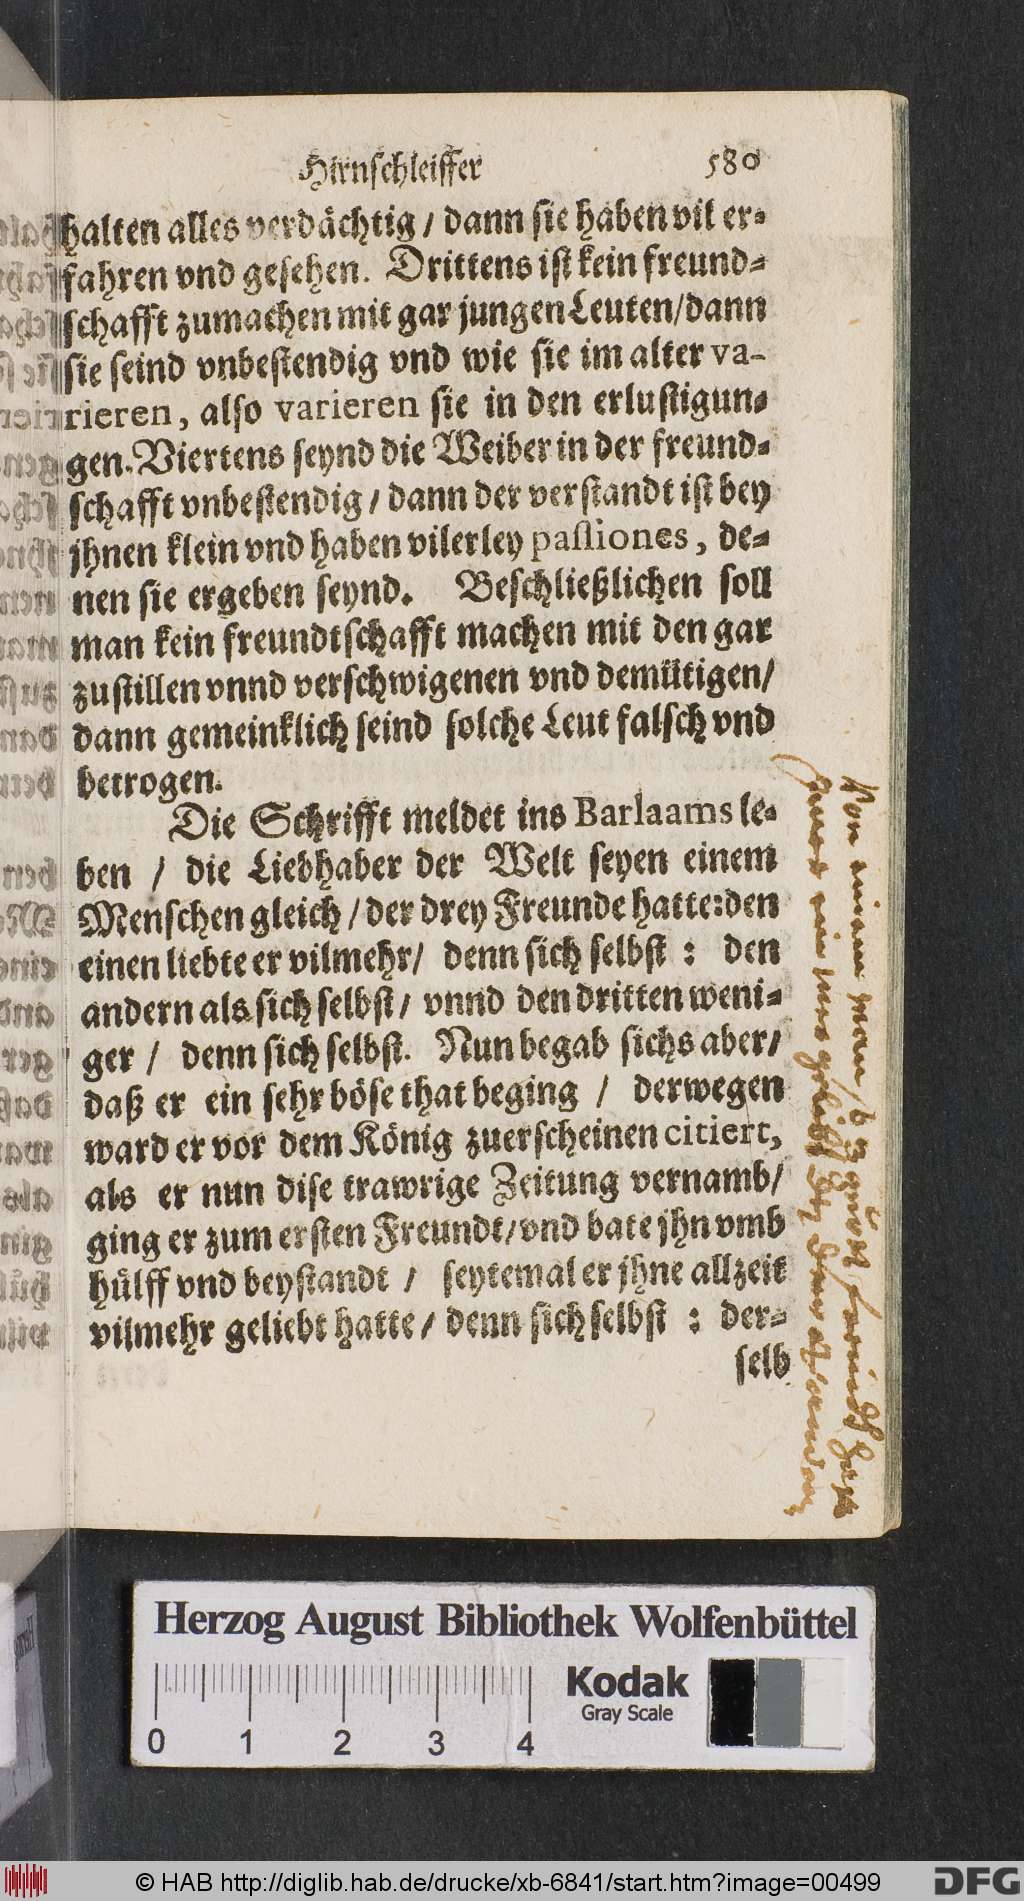 Hirnschleiffer 580
halten alles verdächtig / dann sie haben vil er-
fahren vnd gesehen. Drittens ist kein freund-
schafft zumachen mit gar jungen Leuten/dann
sie seind vnbestendig vnd wie sie im alter va-
rieren, also varieren sie in den erlustigun-
gen. Viertens seynd die Weiber in der freund-
schafft vnbestendig / dann der verstandt ist bey
jhnen klein vnd haben vilerley passiones, de-
nen sie ergeben seynd. Beschließlichen soll
man kein freundtschafft machen mit den gar
zustillen vnnd verschwigenen vnd demütigen/
dann gemeinklich seind solche Leut falsch vnd
betrogen.
Die Schrifft meldet ins Barlaams le-
ben / die Liebhaber der Welt seyen einem
Menschen gleich / der drey Freunde hatte: den
einen liebte er vilmehr/ denn sich selbst : den
andern als sich selbst/ vnnd den dritten weni-
ger / denn sich selbst. Nun begab sichs aber/
daß er ein sehr böse that beging / derwegen
ward er vor dem König zuerscheinen citiert,
als er nun dise trawrige Zeitung vernamb/
ging er zum ersten Freundt/vnd bate jhn vmb
hülff vnd beystandt / seytemal er jhne allzeit
vilmehr geliebt hatte / denn sich selbst : der-
selb
Von einem man
Herzog August Bibliothek Wolfenbüttel
Kodak
Gray Scale
0 1 2 3 4
© HAB http://diglib.hab.de/drucke/xb-6841/start.htm?image=00499
DFG